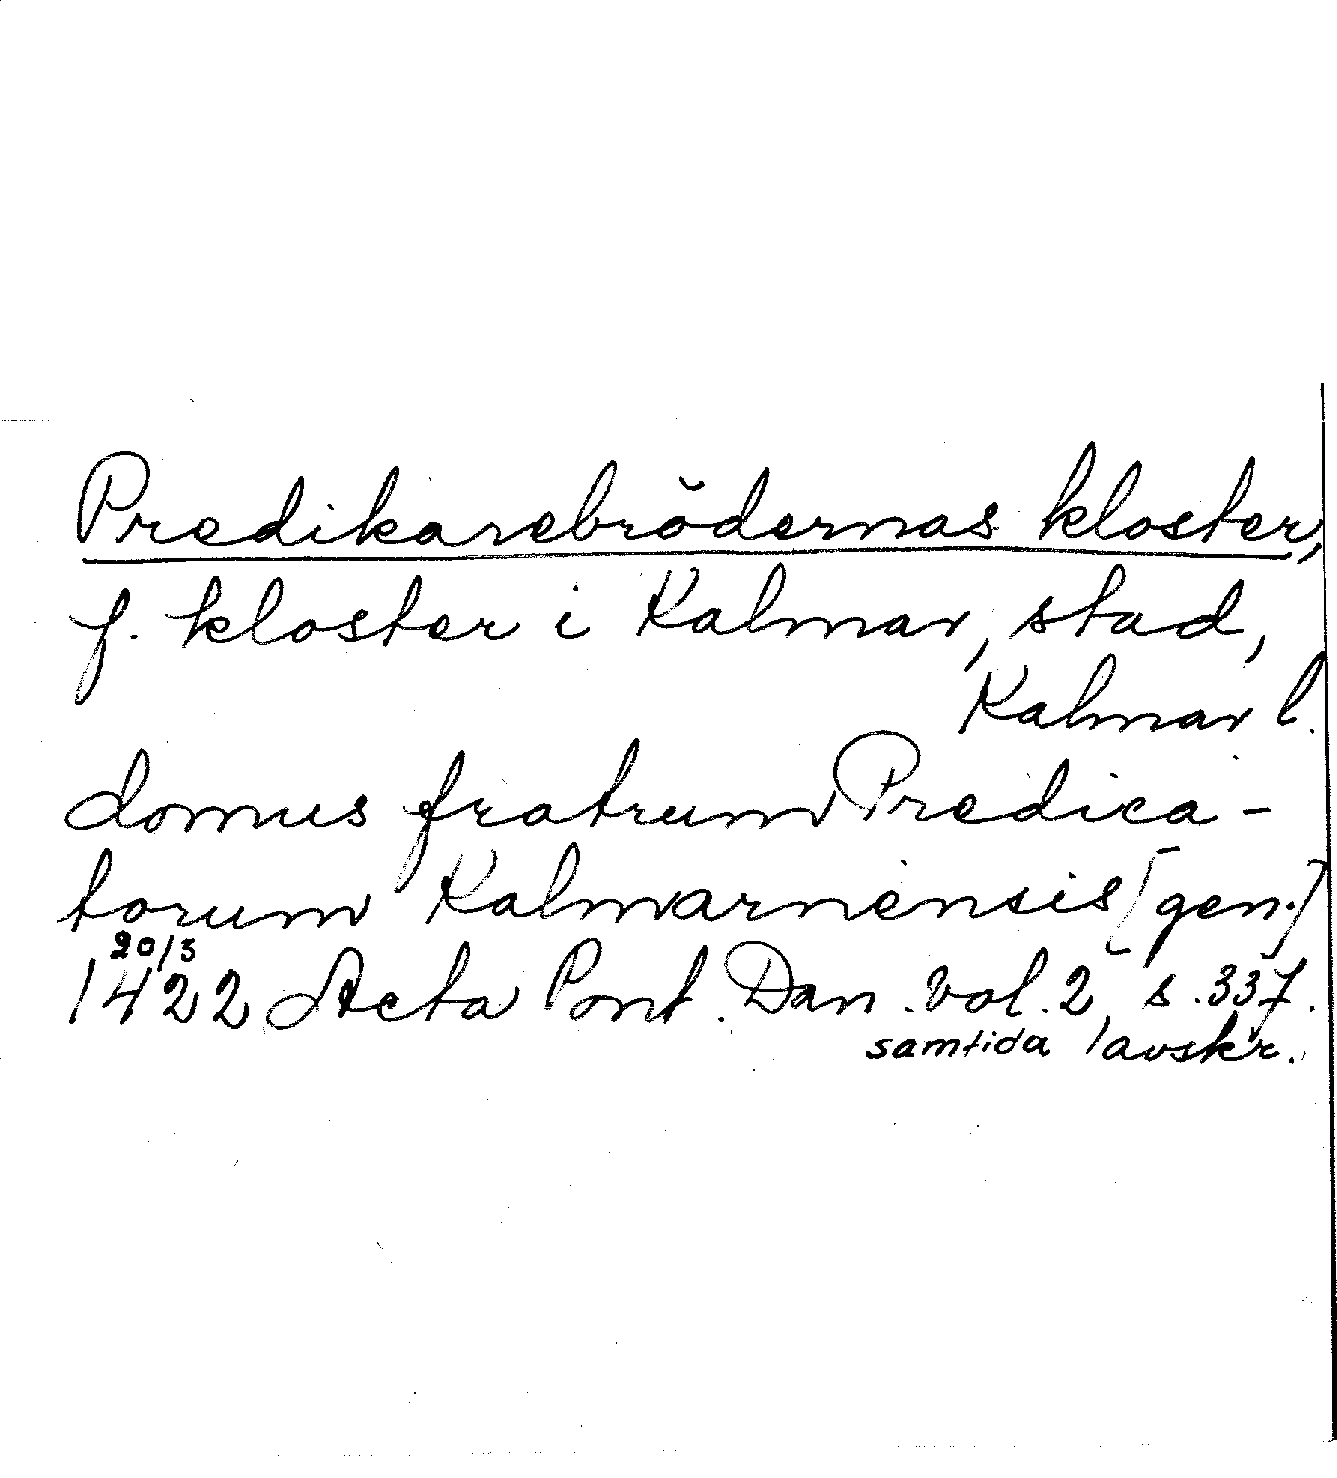 Predikarebrödernas kloster,
f. kloster i Kalmar, stad,
Kalmar l.
domus fratrum Predica-
torum Kalmarnensis [gen.]
20/3
1422 Acta Pont. Dan. vol. 2, s. 337.
samtida avskr.